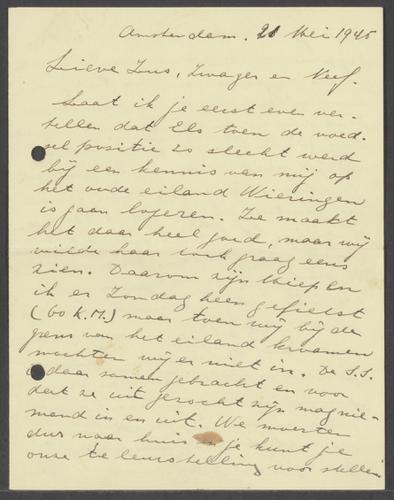 Amsterdam. 21 Mei 1945
Lieve Zus, Zwager en Neef.
Laat ik je eerst even ver-
tellen dat Els toen de voed-
sel positie zo slecht werd
bij een kennis van mij op
het oude eiland Wieringen
is gaan logeren. Ze maakt
het daar heel goed, maar wij
wilde haar toch graag eens
zien. Daarom zijn Wiep en
ik er Zondag heen gefietst
(60 K.M.) maar toen wij bij de
grens van het eiland kwamen
mochten wij er niet in. De S.S.
is daar samen gebracht en voor
dat ze uit gezocht zijn mag nie-
mand in en uit. We moesten
dus naar huis en je kunt je
onze te leurstelling voor stellen